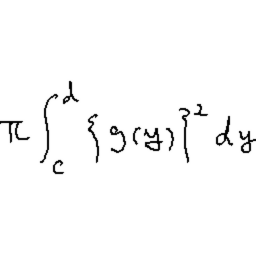 π∫_c^d {g(y)}^2 dy